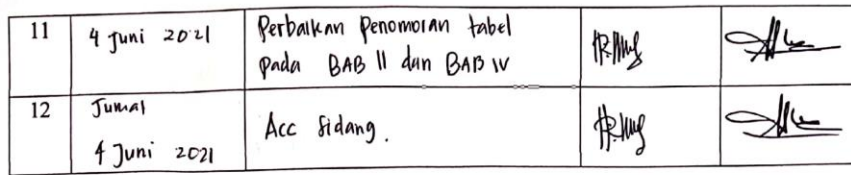 11 4 Juni 2021 Perbaikan Penomoran tabel
pada BAB II dan BAB IV
12 Jumat
4 Juni 2021 Acc Sidang.